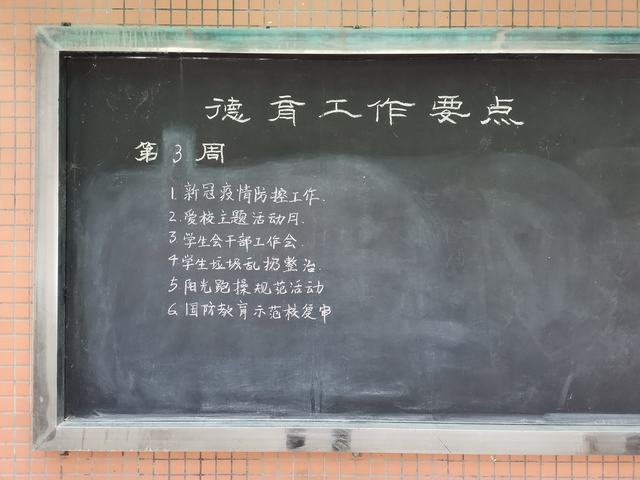 德育工作要点
第3周
1. 新冠疫情防控工作.
2. 爱校主题活动月.
3 学生会干部工作会.
4 学生垃圾乱扔整治.
5 阳光跑操规范活动
6. 国防教育示范校复审